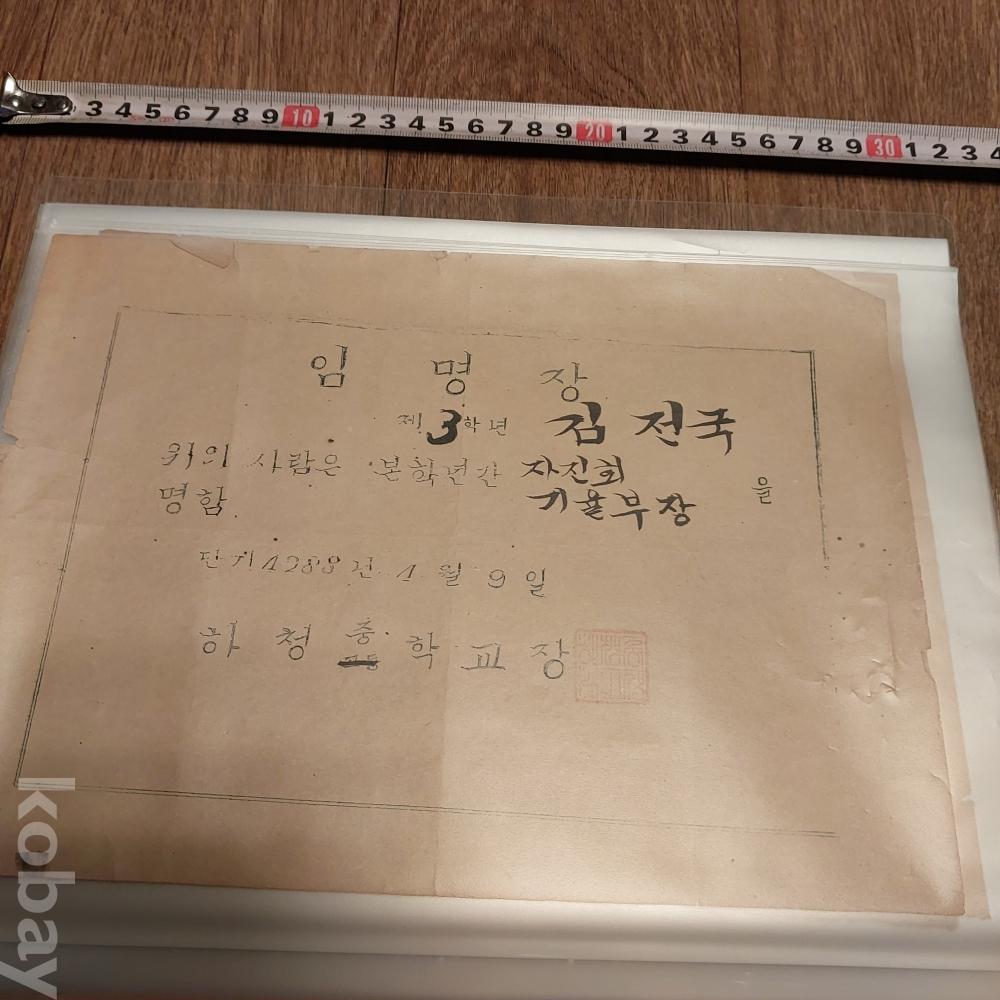 3 4 5 6 7 8 9 10 1 2 3 4 5 6 7 8 9 20 1 2 3 4 5 6 7 8 9 30 1 2 3 4
임 명 장
제 3 학년 김 전국
위의 사람은 본학년간 자진회 기율부장 을
명함
단기 4288년 4월 9일
하 청 중 고등 학 교 장
kobay